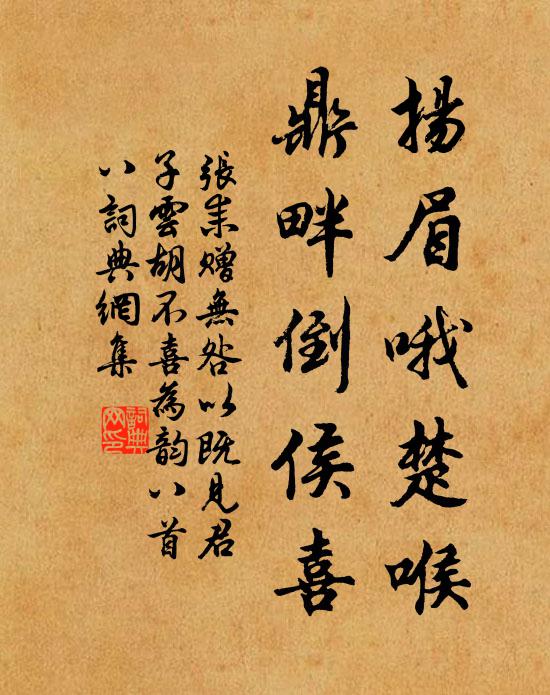 揚眉哦楚喉
鼎畔倒侯喜
張耒贈無咎以既見君
子雲胡不喜為韵八首
詞典網集